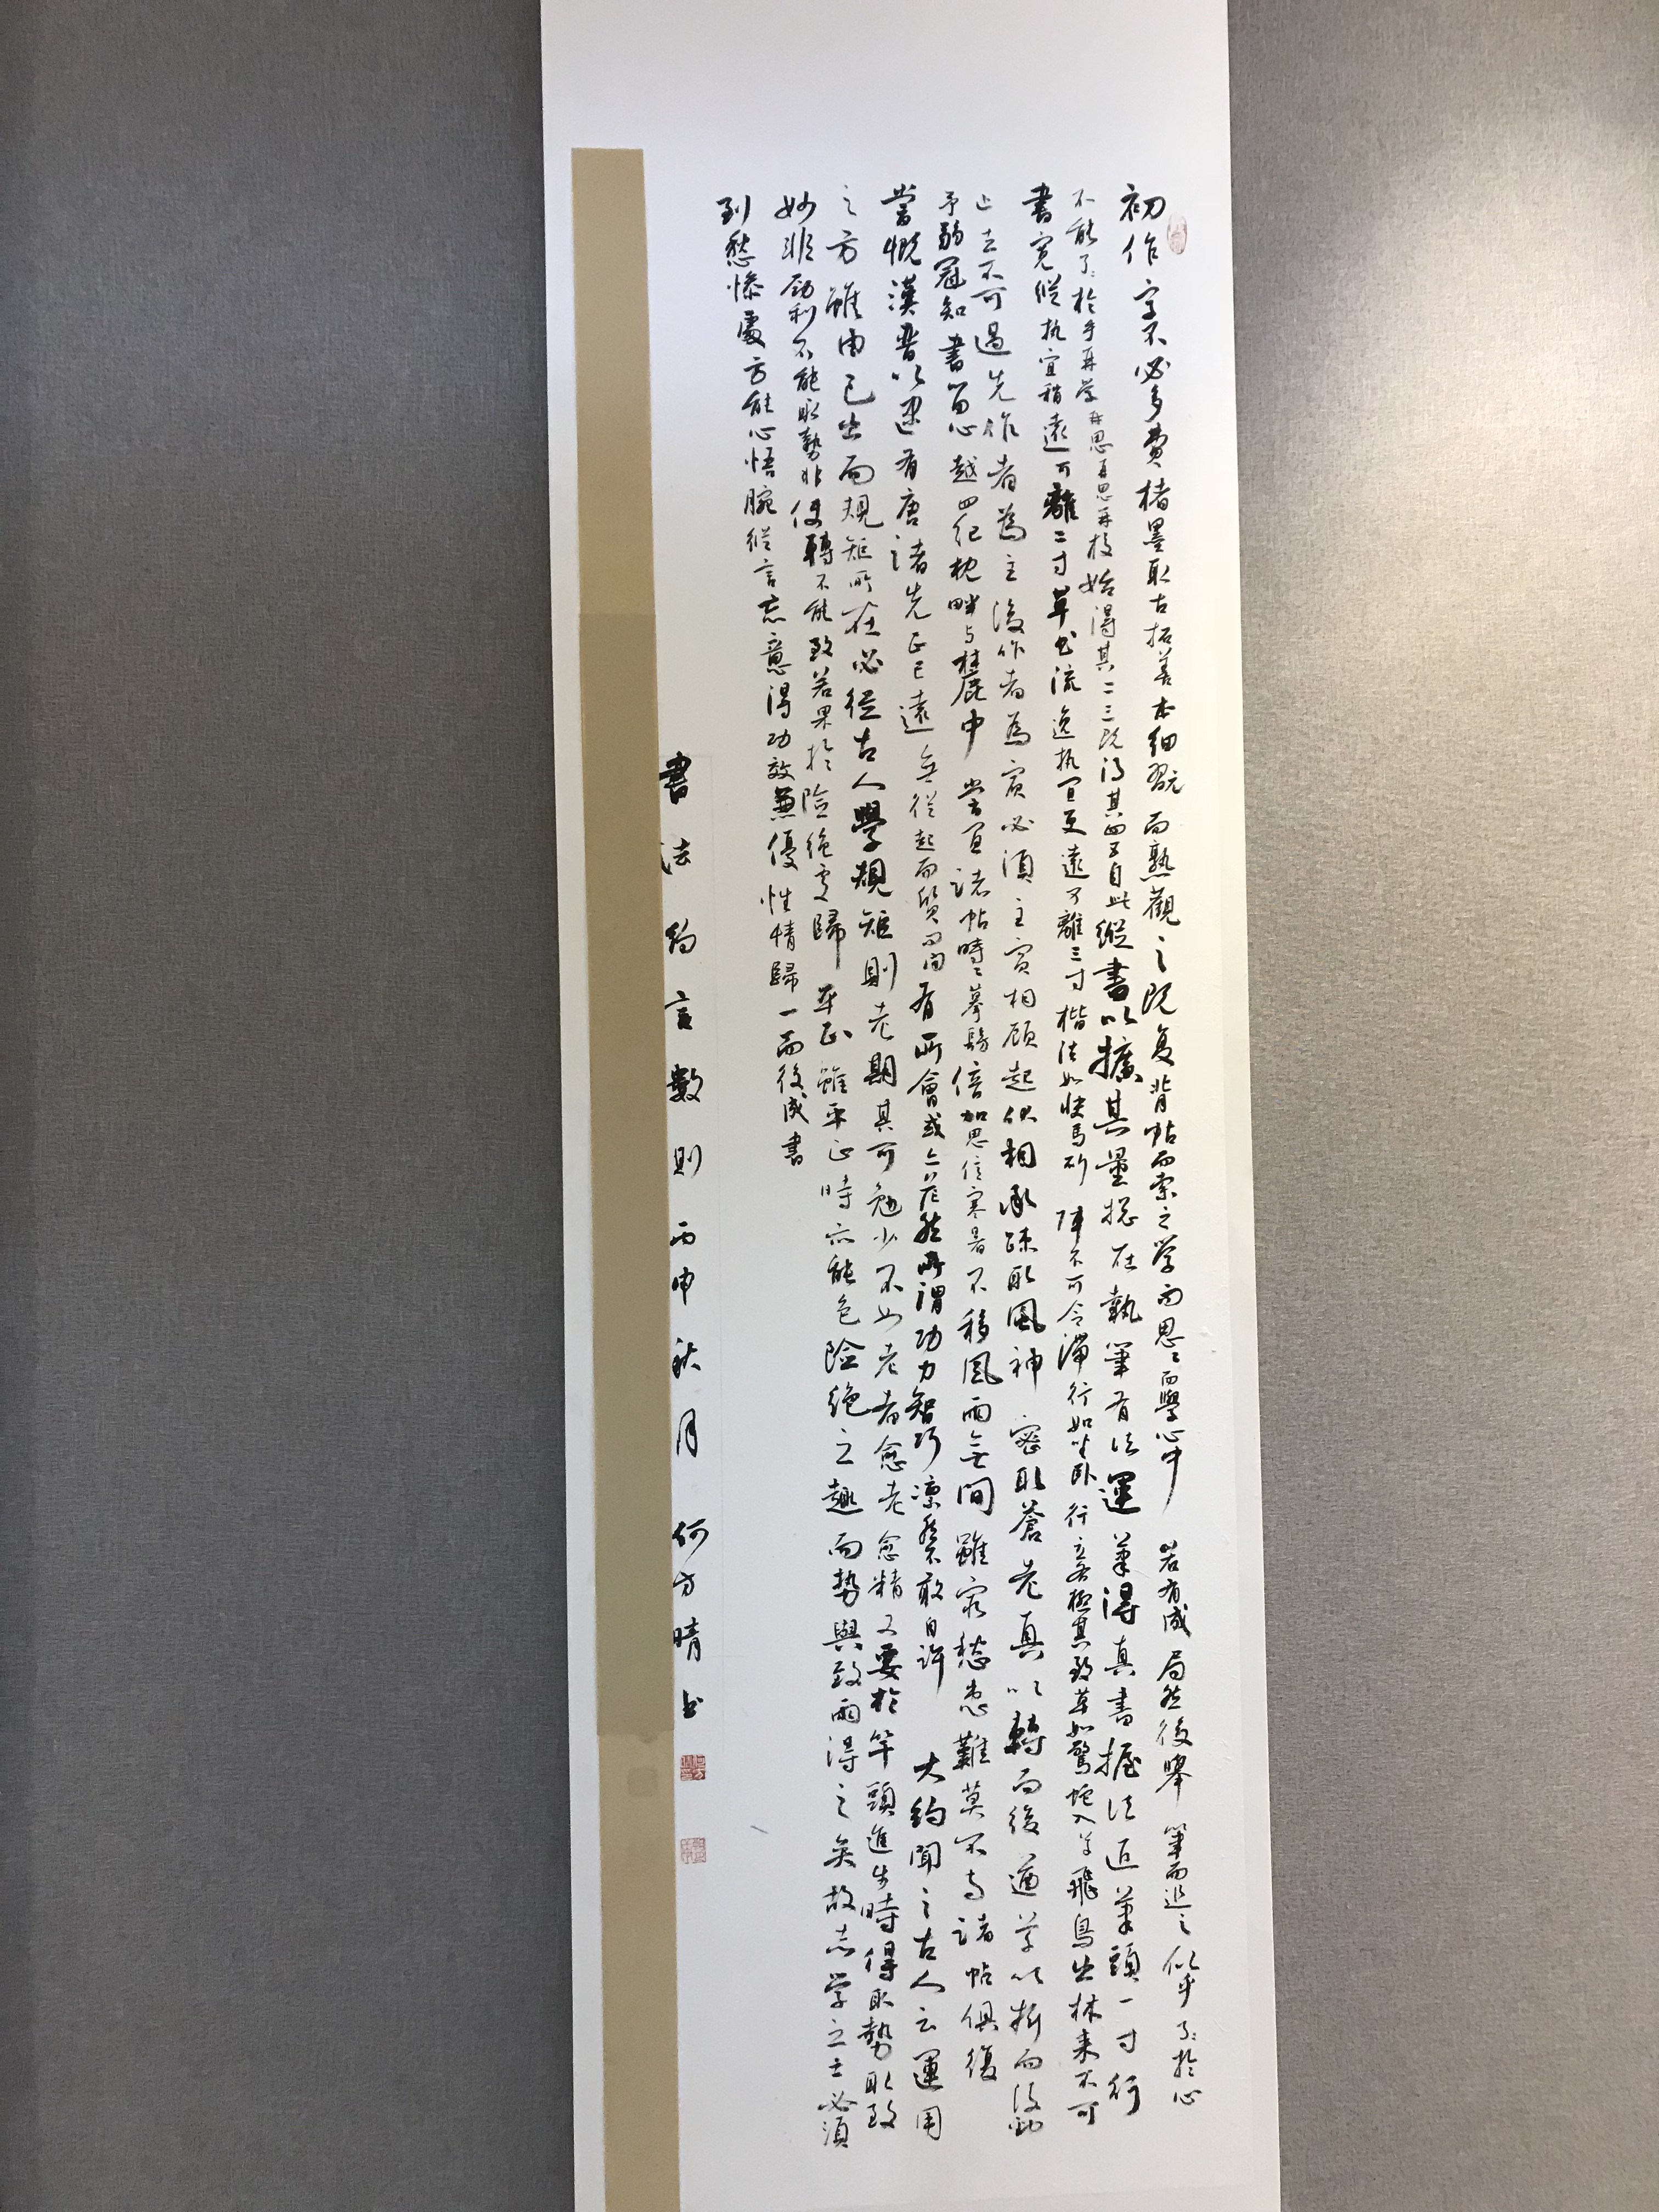 初作字不必多費楮墨取古拓善本細翫而熟觀之既复背帖而索之学而思思而學心中若有成局然後舉筆而追之似乎了了於心
不能了了於手再学再思再思再校始得其二三既得其四五自此縱書以擴其量捴在執筆有法運筆得真書握法近筆頭一寸行
書寬縱执宜稍遠可離二寸草书流逸执宜更遠可離三寸楷法如快馬斫陣不可令滯行如坐卧行立各極其致草如驚蛇入草飛鳥出林来不可
止去不可遏先作者為主後作者為賓必須主賓相顾起伏相承疎取風神密取蒼老真以轉而後遒草以折而後勁
予弱冠知書留心越四纪枕畔与麓中嘗置諸帖時時摹髣倍加思信寒暑不移風雨無間雖窮愁患難莫不与諸帖俱復
嘗慨漢晋以逮有唐諸先正已遠無從起而質间有所會或亦茫然所謂功力智巧凛然不敢自許大約聞之古人云運用
之方雖由已出而規矩所在必從古人學規矩則老期其可勉少不如老者愈老愈精又要於竿頭進步時得取勢取致
妙非劲利不能取勢非使轉不能致若果於險绝處歸平正雖平正時亦能包險绝之趣而势與致兩得之矣故志学之士必須
到愁慘處方能心悟腕從言忘意得功效兼優性情歸一而後成書
書法約言數則丙申秋月何方晴书